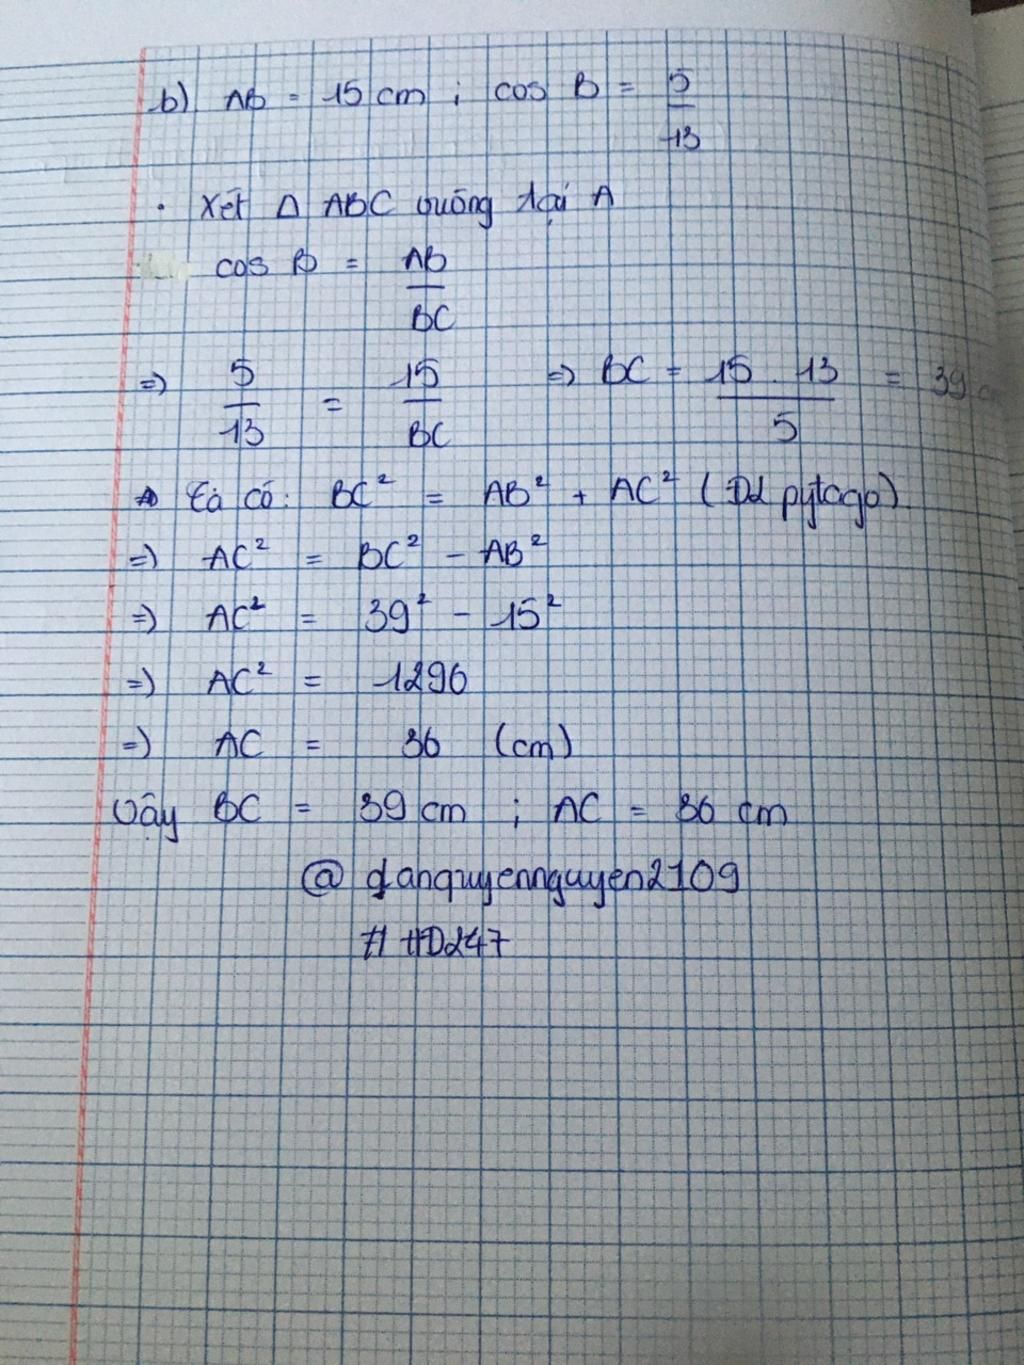 b) AB = 15 cm ; cos B = 5/13
. Xét Δ ABC vuông tại A
cos B = AB/BC
=> 5/13 = 15/BC => BC = 15 . 13/5 = 39 cm
Ta có: BC² = AB² + AC² (Đl pytago)
=> AC² = BC² - AB²
=> AC² = 39² - 15²
=> AC² = 1296
=> AC = 36 (cm)
Vậy BC = 39 cm ; AC = 36 cm
@ danquyennguyen2109
# HD247